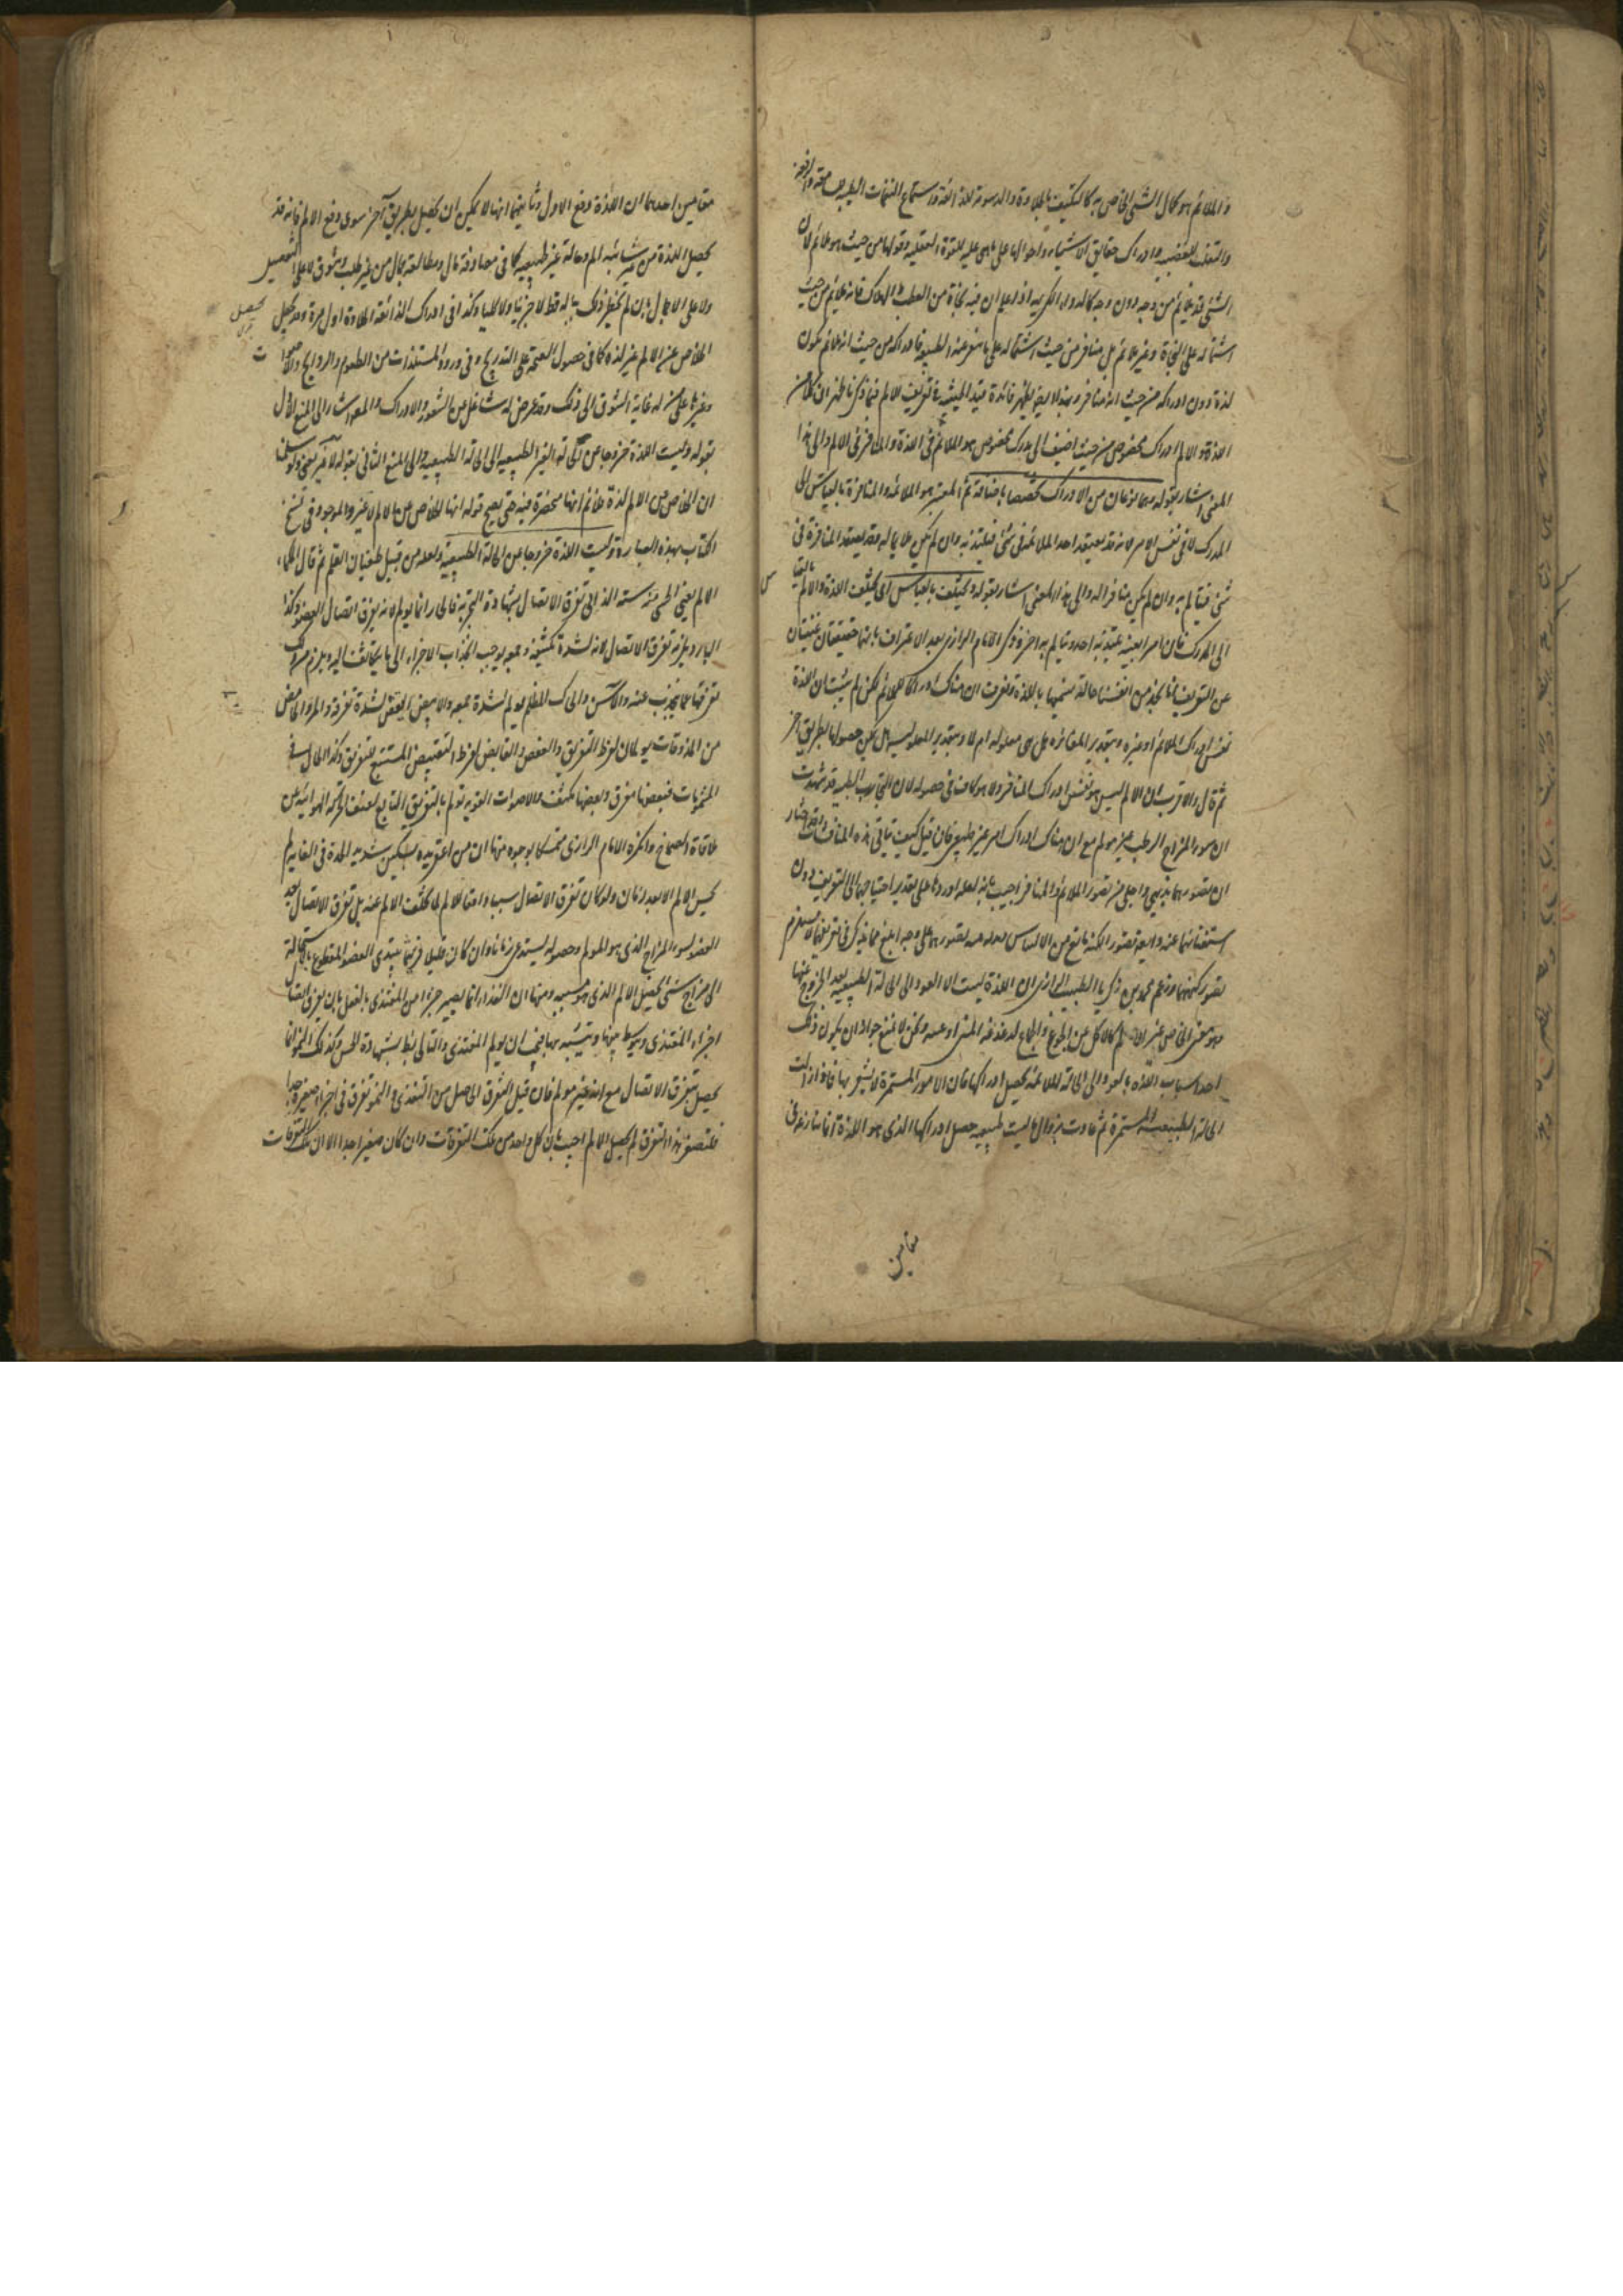 والملائم هو كمال الشئ الخاص به كالتكيف بالحلاوة والدسومة للذائقة واستماع النغمات الطيبة للسامعة
والتغلب للغضبية وادراك حقايق الاشياء واحوالها على ما هى عليه للقوة العقلية وقولنا من حيث هو ملائم لان
الشئ قد يلائم من وجه دون وجه كالدواء الكريه اذا علم ان فيه نجاة من العطب والهلاك فانه ملائم من حيث
اشتماله على النجاة وغير ملائم بل منافر من حيث اشتماله على ما تنفر عنه الطبيعة فادراكه من حيث انه ملائم يكون
لذة دون ادراكه من حيث انه منافر وبهذا ايضا يظهر فائدة قيد الحيثية فى تعريف الالم فيما ذكرنا ظهر ان كلا من
اللذة والالم ادراك مخصوص من حيث اضيف الى مدرك مخصوص هو الملائم فى اللذة والمنافر فى الالم والى هذا
المعنى اشار بقوله وهما نوعان من الادراك تخصصا باضافة ثم المعتبر هو الملائمة والمنافرة بالقياس الى
المدرك لا فى نفس الامر لانه قد يعتقد احد الملائمة فى شئ فيلتذ به وان لم يكن ملايما له وقد يعتقد المنافرة فى
شئ فيتالم به وان لم يكن منافرا له والى هذا المعنى اشار بقوله ويختلف بالقياس اى يختلف اللذة والالم بالقياس
الى المدرك فان امرا بعينه يلتذ به احد ويتالم به اخر وذكر الامام الرازى بعد الاعتراف بانهما حقيقتان غنيتان
عن التعريف انا نجد من انفسنا حالة نسميها باللذة ونعرف ان هناك ادراكا للملائم لكن لم يثبت ان اللذة
نفس ادراك الملائم او غيره وبتقدير المغائرة هل هى معلوله ام لا وبتقدير المعلولية هل يمكن حصولها بطريق اخر
ثم قال والاقرب ان الالم ليس هو نفس ادراك المنافر ولا هو كاف فى حصوله لان التجارب الطبية قد شهدت
ان سوء المزاج الرطب غير مولم مع ان هناك ادراك امر غير طبيعى فان قيل كيف تتاتى هذه المناقشات
ان تصورهما بديهى واجلى من تصور الملائم والمنافر اجيب بانه لعله اورد ها على تقدير احتياجهما الى التعريف دون
استغنائهما عنه
تصور كنههما وزعم محمد بن زكريا الطبيب الرازى ان اللذة ليست الا العود الى الحالة الطبيعية بعد الخروج عنها
وهو معنى الخلاص عن الالم كالاكل عن الجوع والجماع لدغدغة المنى اوعيته ونحن لا نمنع جواز ان يكون ذلك
احد اسباب اللذة بالعود الى الحالة الملائمة يحصل ادراكها فان الامور المستمرة لا يشعر بها فاذا زالت
الحالة الطبيعية المستمرة ثم عادت بزوال ما ليست طبيعية حصل ادراكها الذى هو اللذة انما ننازعه فى
مقامين
مقامين احدهما ان اللذة دفع الالم وثانيهما انها لا يمكن ان يحصل بطريق اخر سوى دفع الالم فانه قد
يحصل اللذة من غير شائبة الم وحالة غير طبيعية كما فى مصادفة مال ومطالعة جمال من غير طلب وشوق لا على التفصيل
ولا على الاجمال بان لم يخطر ذلك بباله قط لا جزئيا ولا كليا وكذا فى ادراك الذائقة الحلاوة اول مرة وقد يحصل
الخلاص عن الالم غير لذة كما فى حصول الصحة على التدريج وفى ورود المستلذات من الطعوم والروايح والاصوات
وغيرها على من له غاية الشوق الى ذلك وقد عرض له شاغل عن الشعور والادراك والمصنف اشار الى المنع الاول
بقوله وليست اللذة خروجا عن الحالة الغير الطبيعية الى الحالة الطبيعية والى المنع الثانى بقوله لا غير يعنى ولو سلمنا
ان الخلاص من الالم لذة فلا نم انها منحصرة فيه حتى يصح قوله انها الخلاص عن الالم لا غير والموجود فى نسخ
الكتاب بهذه العبارة وليست اللذة خروجا عن الحالة الطبيعية ولعله من قبيل طغيان القلم ثم قال الحكماء
الالم يعنى الحسى منه سببه الذاتى تفرق الاتصال بشهادة التجربة فالحار انما يولم لانه يفرق اتصال العضو وكذا
البارد يلزمه تفرق الاتصال لانه لشدة تكثيفه وجمعه يوجب انجذاب الاجزاء الى ما يتكاثف اليه ويلزم من ذلك
تفرقها عما ينجذب عنه والاسود الحالك المظلم يولم لشدة جمعه والابيض اليقق لشدة تفرقه والمر والحامض
من المذوقات يولمان لفرط التفريق والعفص والقابض لفرط التقبيض المستتبع للتفريق وكذا الحال فى
المشمومات فبعضها مفرق وبعضها مكثف والاصوات القوية تولم بالتفريق التابع لعنف الحركة الهوائية عن
ملاقاة الصماخ وانكره الامام الرازى متمسكا بوجوه منها ان من اعتقر يده بسكين شديد الحدة فى الغاية لم
يحس الالم الا بعد زمان ولو كان تفرق الاتصال سببا ذاتيا للالم لما تخلف الالم عنه بل تفرق الاتصال يعد
العضو لسوء المزاج الذى هو المولم وحصوله يستدعى زمانا وان كان قليلا فربما يبتدى العضو المقطوع بالاستحالة
الى مزاج سئ يحصل الالم الذى هو مسببه ومنها ان الغذاء انما يصير جزءا من المغتذى بالفعل بان يفرق اتصال
اجزاء المغتذى ويتوسط بينها ويتشبه بها فيجب ان يولم المغتذى والتالى باطل بشهادة الحس وكذلك النمو انما
يحصل بتفرق الاتصال مع انه غير مولم فان قيل التفرق الحاصل من التغذى والنمو تفرق فى اجزاء صغيرة جدا
فلصغر هذا التفرق لم يحصل الالم اجيب بان كل واحد من تلك التفرقات وان كان صغيرا جدا الا ان تلك التفرقات